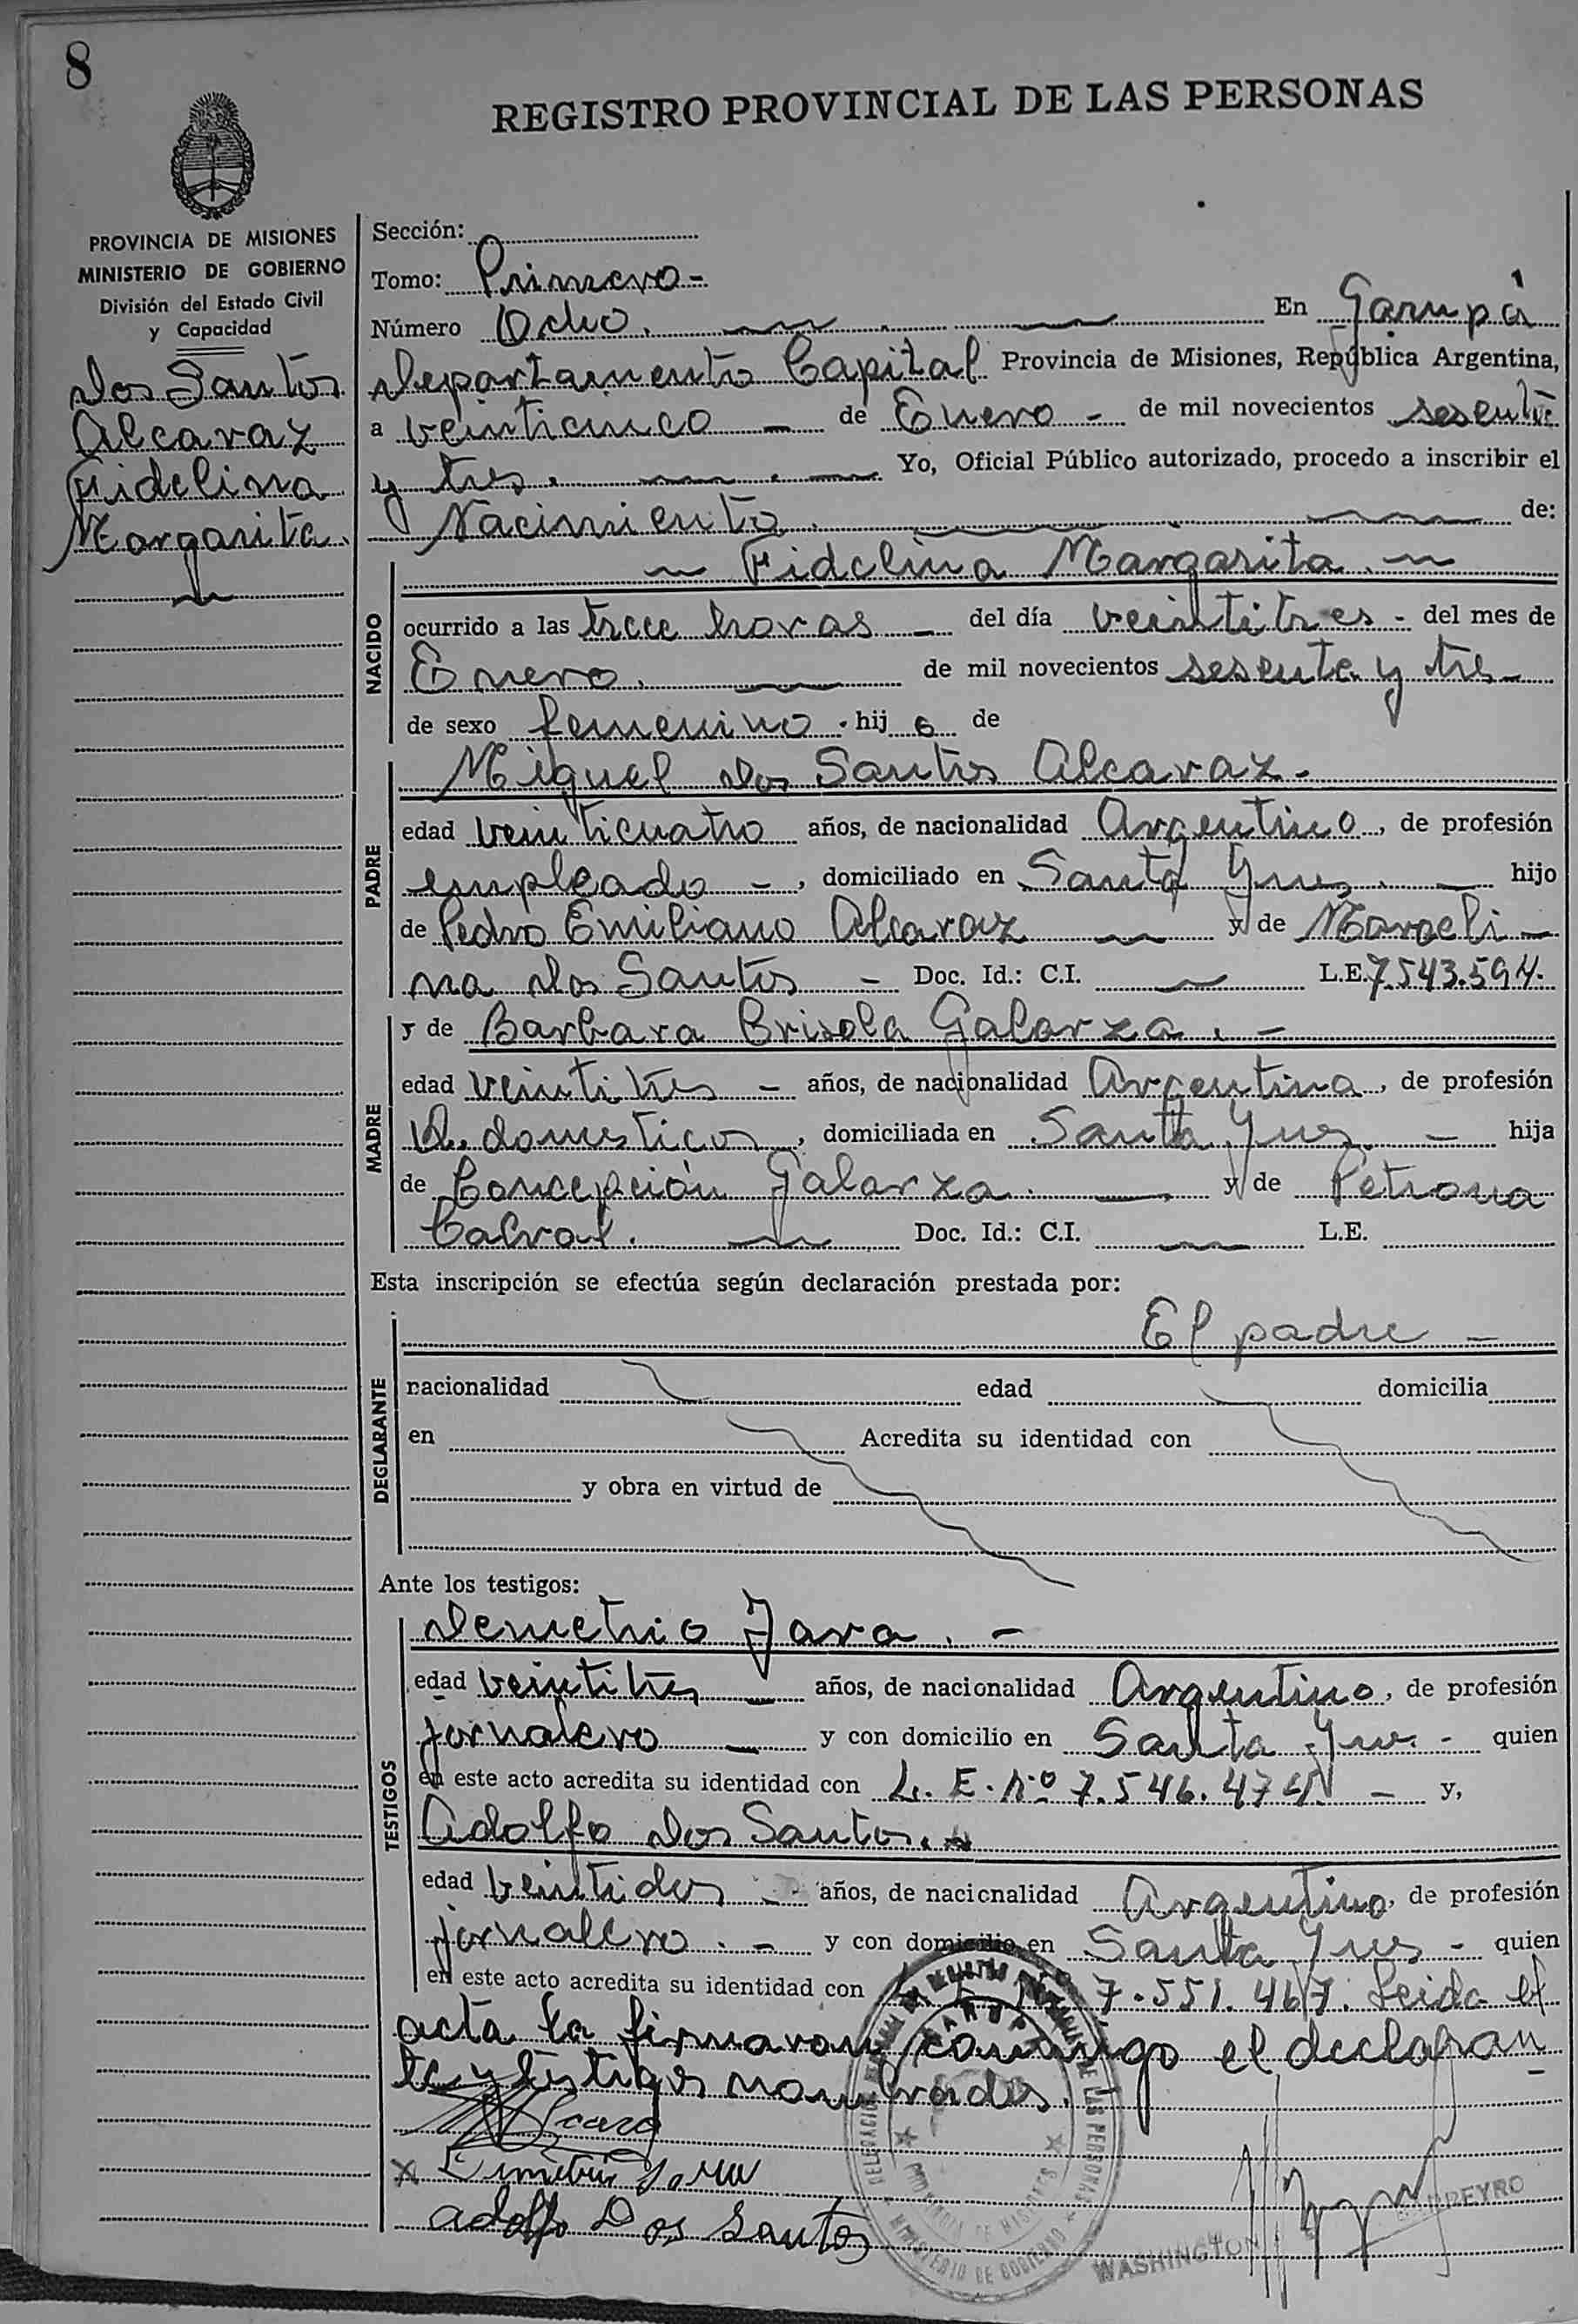 8
REGISTRO PROVINCIAL DE LAS PERSONAS
PROVINCIA DE MISIONES
MINISTERIO DE GOBIERNO
División del Estado Civil
y Capacidad
Dos Santos
Alcaraz
Fidelina
Margarita.
Sección:
Tomo: Primero-
Número Ocho. En Garupá
Departamento Capital Provincia de Misiones, República Argentina,
a veinticinco - de Enero - de mil novecientos sesenta
y tres. Yo, Oficial Público autorizado, procedo a inscribir el
Nacimiento. de:
NACIDO
Fidelina Margarita.
ocurrido a las trece horas - del día veintitres - del mes de
Enero. de mil novecientos sesenta y tres -
de sexo femenino. hij a de
PADRE
Miguel dos Santos Alcaraz.-
edad veinticuatro años, de nacionalidad Argentino, de profesión
empleado -, domiciliado en Santa Ynes. - hijo
de Pedro Emiliano Alcaraz y de Marceli-
na dos Santos - Doc. Id.: C.I. L.E. 7.543.594.
MADRE
y de Barbara Brisola Galarza. -
edad veintitres - años, de nacionalidad Argentina, de profesión
Q. domesticos, domiciliada en Santa Ynes. - hija
de Concepción Galarza. y de Petrona
Cabral. Doc. Id.: C.I. L.E.
Esta inscripción se efectúa según declaración prestada por:
DECLARANTE
El padre -
nacionalidad edad domicilia
en Acredita su identidad con
y obra en virtud de
Ante los testigos:
TESTIGOS
Demetrio Jara. -
edad veintitres años, de nacionalidad Argentino, de profesión
jornalero - y con domicilio en Santa Ynes. - quien
en este acto acredita su identidad con L. E. Nº 7.546.474 - y,
Adolfo dos Santos.
edad veintidos - años, de nacionalidad Argentino, de profesión
jornalero. - y con domicilio en Santa Ynes - quien
en este acto acredita su identidad con 7.551.467. Leida el
acta la firmaron conmigo el declaran
te y testigos nombrados. -
x Demetrio Jara
Adolfo Dos Santos
DE LAS PERSONAS
GARUPA
PROVINCIA DE MISIONES
MINISTERIO DE GOBIERNO
WASHINGTON